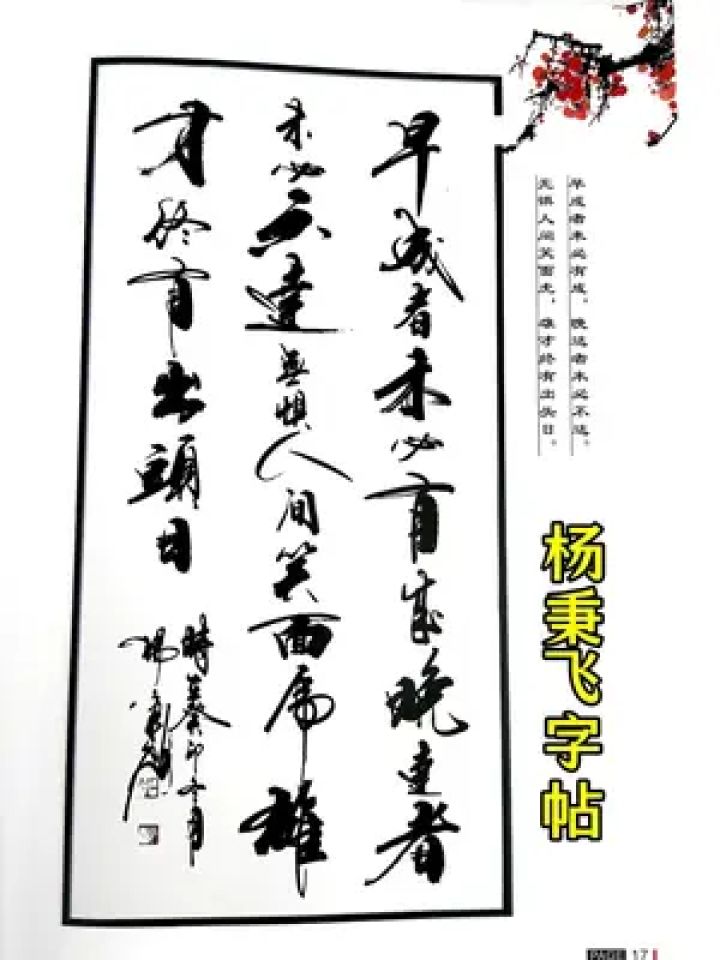 早成者未必有成，晚达者未必不达。
无惧人间笑面虎，雄才终有出头日。
杨秉飞字帖
早成者未必有成晚達者
未必不達無惧人间笑面虎雄
才終有出頭日
時在癸卯冬月
PAGE 17